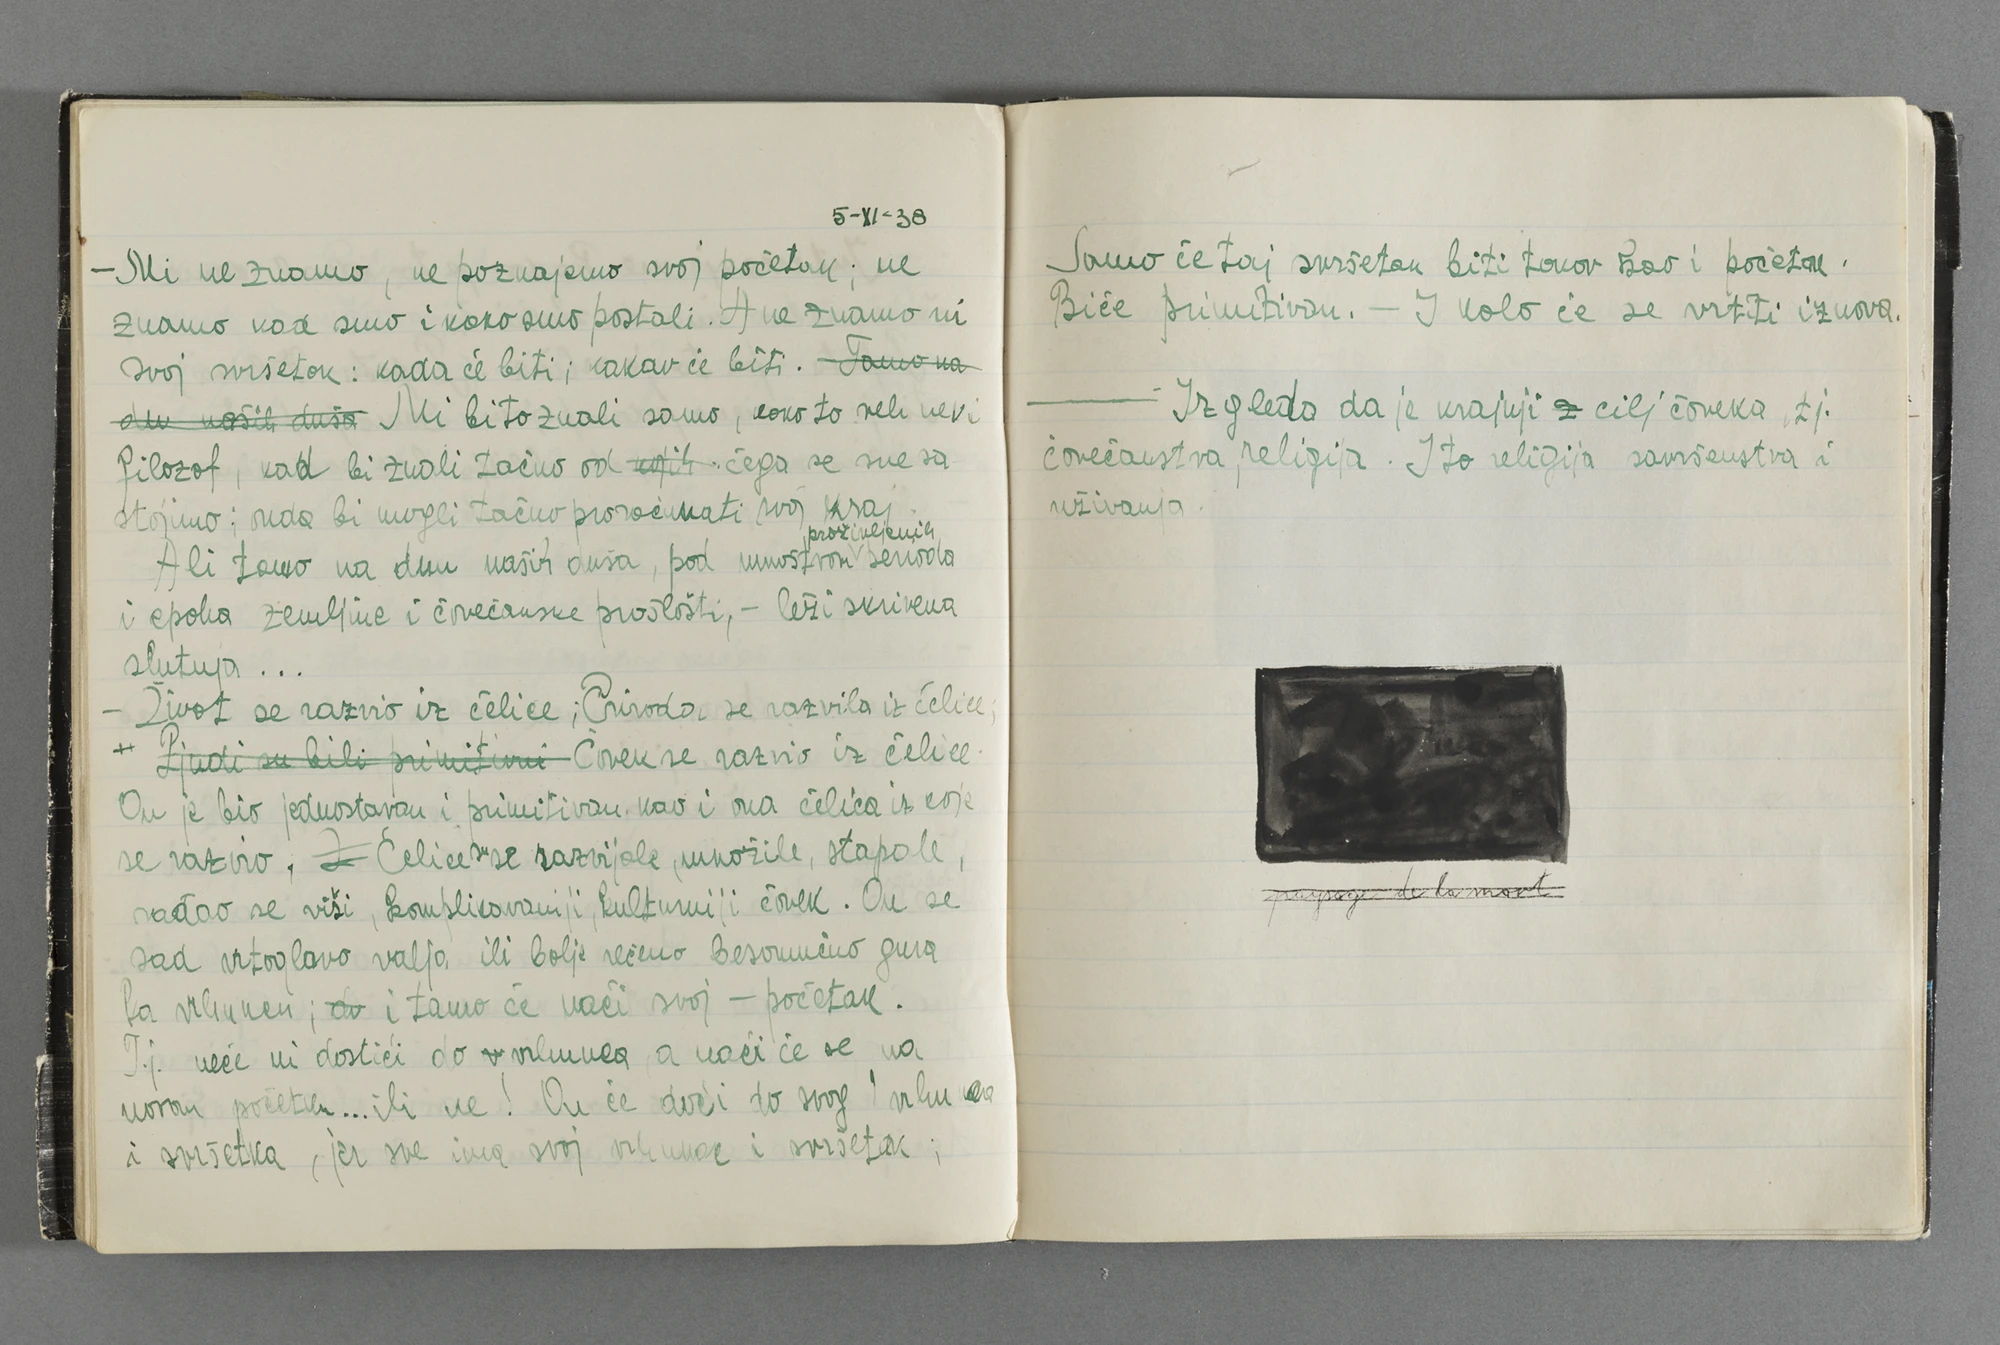 5-XI-38
— Mi ne znamo, ne poznajemo svoj početak; ne
znamo kad smo i kako smo postali. A ne znamo ni
svoj svršetak: kada će biti; kakav će biti. — Tamo na
dnu naših duša Mi bi to znali samo, kako to reče neki
filozof, kad bi znali tačno od kojih čega se sve sa
stojimo; onda bi mogli tačno proračunati svoj kraj.
proživljenih
Ali tamo na dnu naših duša, pod mnoštvom perioda
i epoha zemljine i čovečanske prošlosti, — leži skrivena
slutnja ...
— Život se razvio iz ćelice; Priroda se razvila iz ćelice;
Ljudi su bili primitivni Čovek se razvio iz ćelice.
On je bio jednostavan i primitivan kao i ona ćelica iz koje
se razvio. Ćelice su se razvijale, množile, stapale,
rađao se viši, komplikovaniji, kulturniji čovek. On se
sad vrtoglavo valja ili bolje rečeno besomučno gura
ka vrhuncu; do i tamo će naći svoj — početak.
T.j. neće ni dostići do vrhunca, a naći će se na
novom početku... ili ne! On će doći do svog vrhunca
i svršetka, jer sve ima svoj vrhunac i svršetak;
Samo će taj svršetak biti takav kao i početak.
Biće primitivan. — I kolo će se vrteti iznova.
— Izgleda da je krajnji cilj čoveka, tj.
čovečanstva, religija. I to religija savršenstva i
uživanja.
paysage de la mort